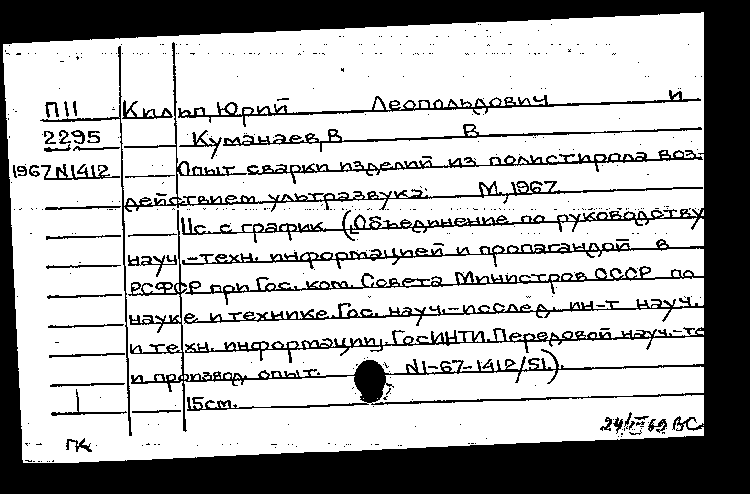 ПII Килип, Юрий Леопольдович и
2295 Куманаев, В В
1967 N1412 Опыт сварки изделий из полистирола воз-
действием ультразвука. М., 1967.
11с. с график. (Объединение по руководству
науч.-техн. информацией и пропагандой в
РСФСР при Гос. ком. Совета Министров СССР по
науке и технике. Гос. науч.-послед. ин-т науч.
и техн. информации. ГосИНТИ. Передовой науч.-те
и производ. опыт. N1-67-1412/51).
15см.
ПК